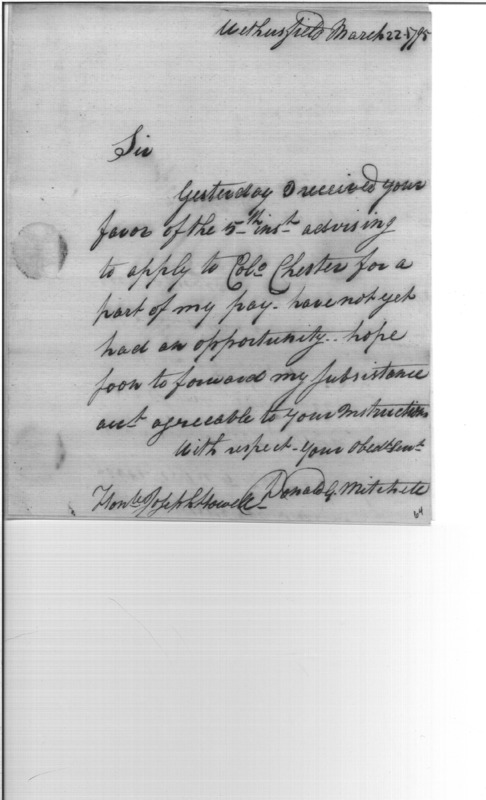 Wethersfield March 22. 1795
Sir
Yesterday I received your
favor of the 5th inst advising
to apply to Colo Chester for a
part of my pay - have not yet
had an opportunity.. hope
soon to forward my Subsistance
acct agreeable to your Instructions
With respect - your Obedt Servt
Donald G. Mitchell
Honble Joseph Howell
64